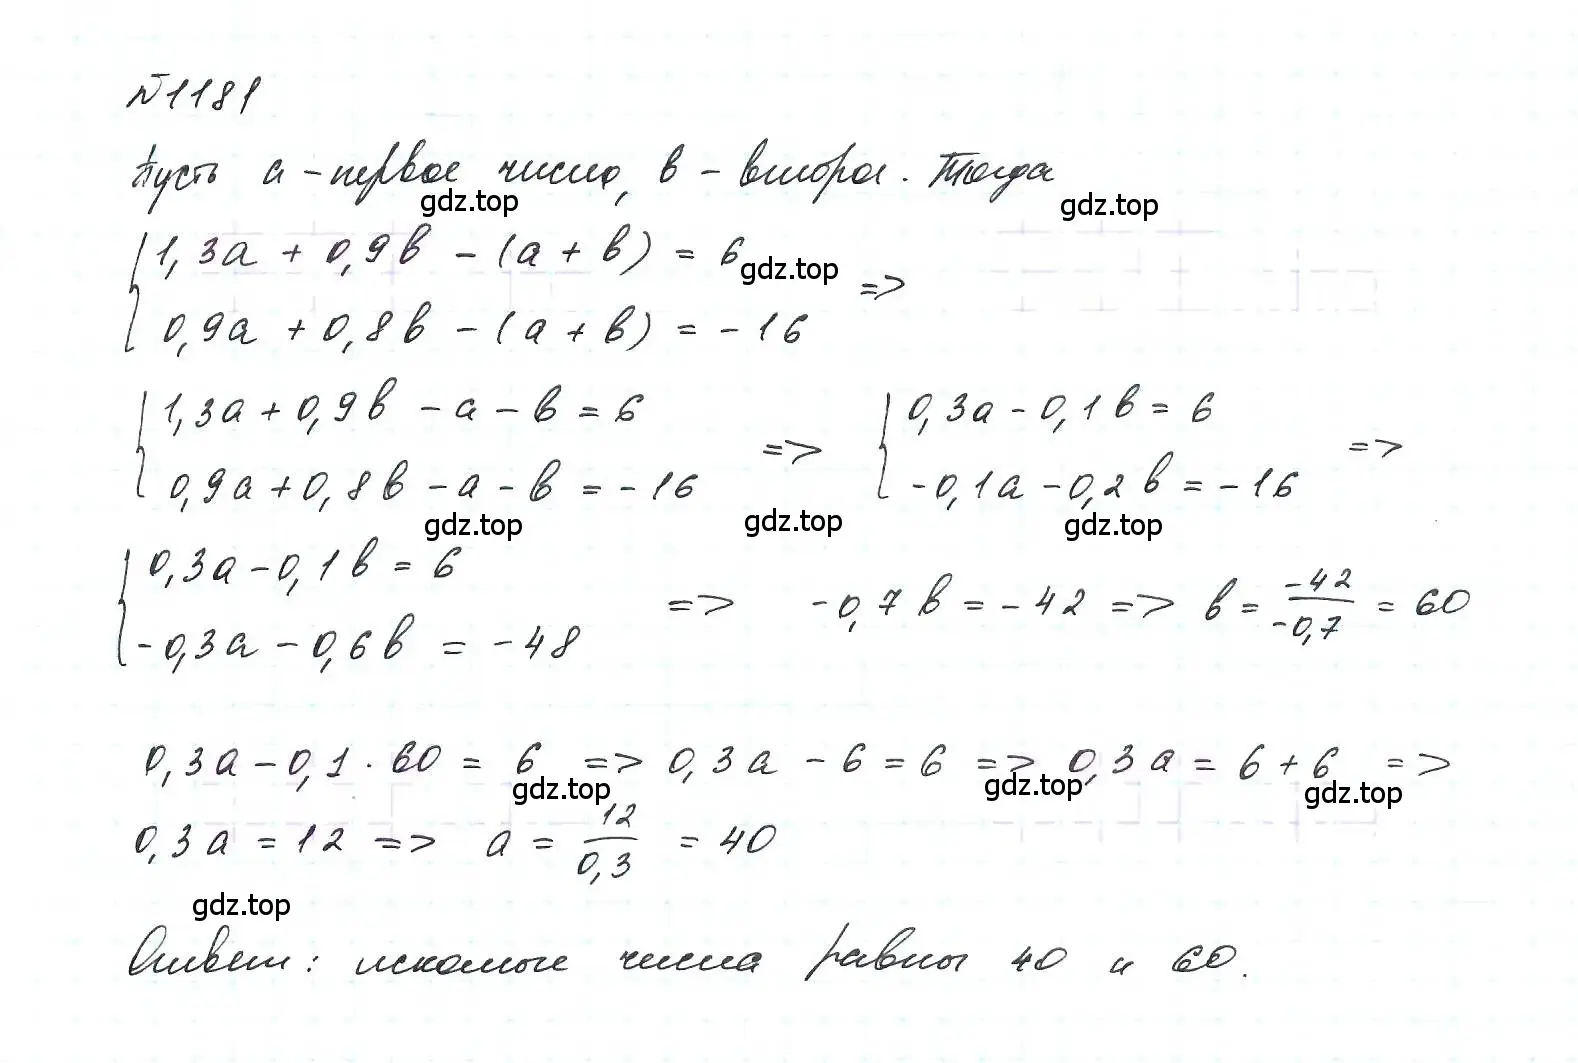 №1181
Пусть а - первое число, в - второе. Тогда
gdz.top gdz.top
1,3a + 0,9в - (a + в) = 6 gdz.top =>
0,9a + 0,8в - (a + в) = -16
1,3a + 0,9в - a - в = 6 => 0,3a - 0,1в = 6 =>
0,9a + 0,8в - a - в = -16 -0,1a - 0,2в = -16
gdz.top gdz.top gdz.top
0,3a - 0,1в = 6 => -0,7в = -42 => в = -42/-0,7 = 60
-0,3a - 0,6в = -48
0,3a - 0,1 · 60 = 6 => 0,3a - 6 = 6 => 0,3a = 6 + 6 =>
gdz.top gdz.top gdz.top
0,3a = 12 => a = 12/0,3 = 40
gdz.top
Ответ: искомые числа равны 40 и 60.